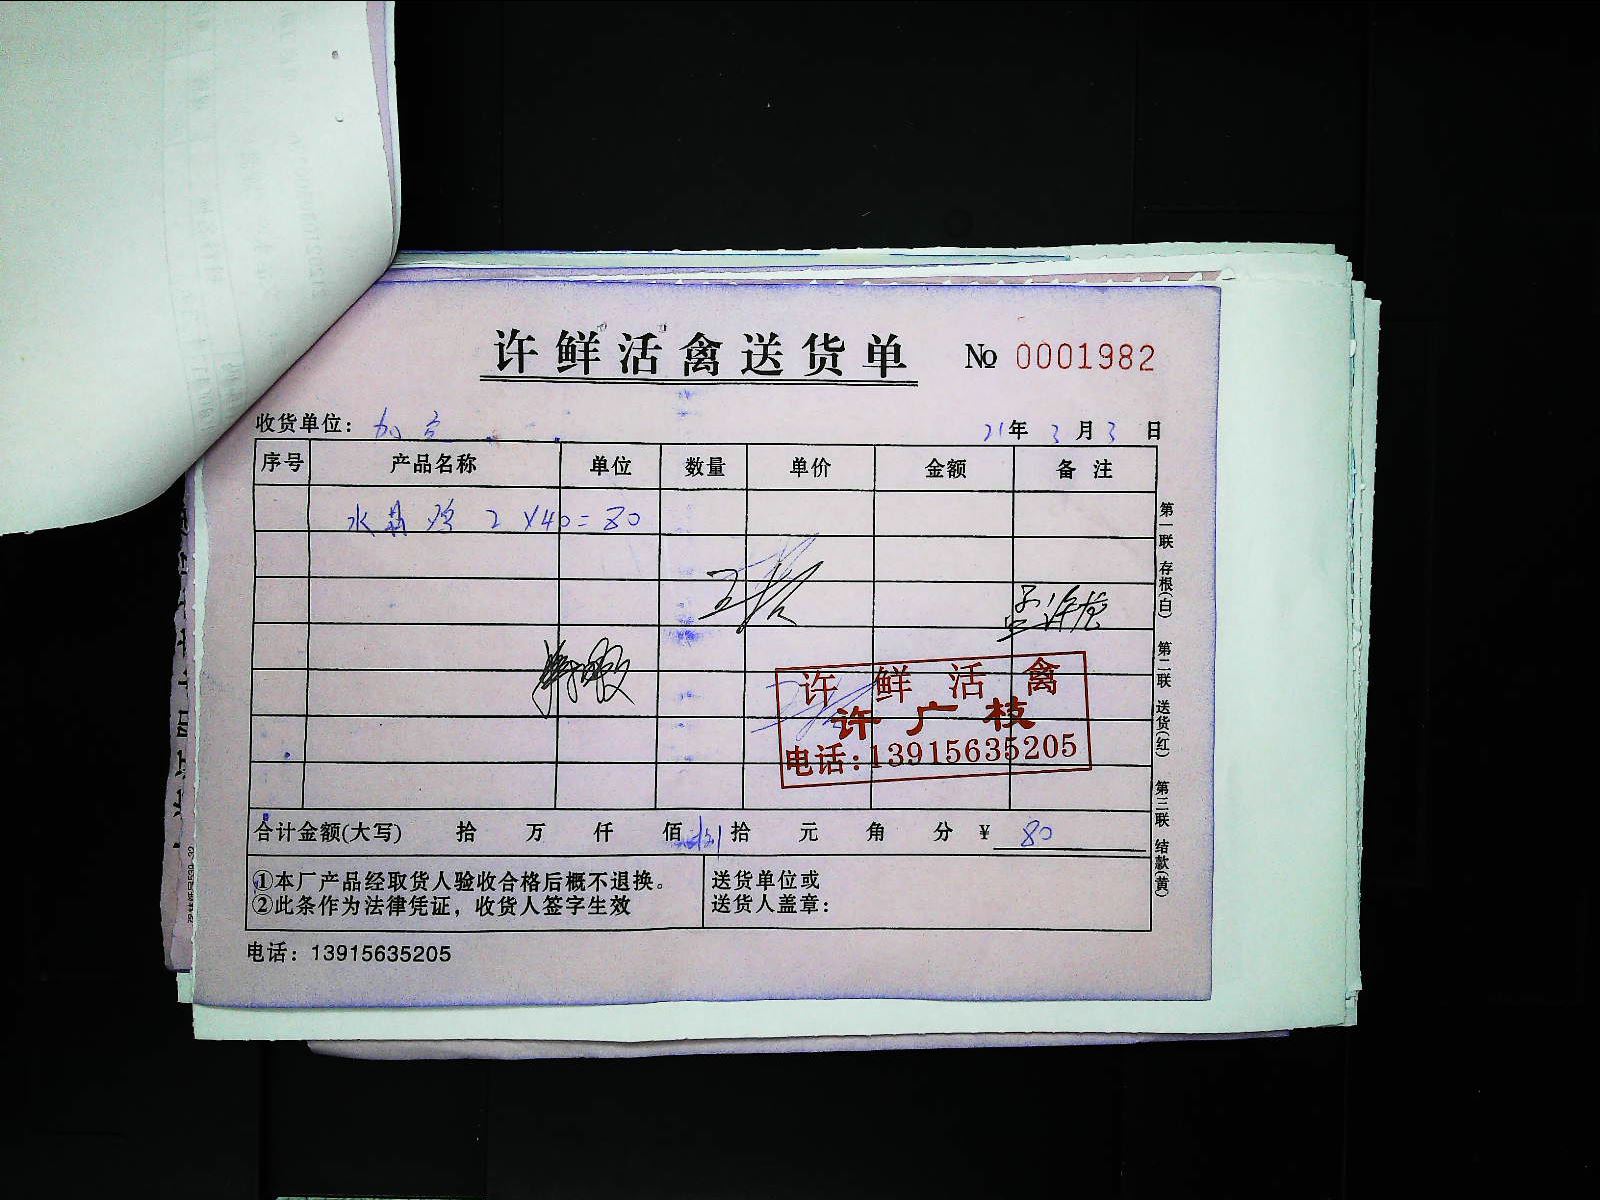 许鲜活禽送货单 No 0001982
收货单位：
21年 3月 3日
序号 产品名称 单位 数量 单价 金额 备注
水晶鸡 2 X40=80
许鲜活禽
许广枝
电话:13915635205
合计金额(大写) 拾 万 仟 佰 捌拾 元 角 分 ¥ 80
①本厂产品经取货人验收合格后概不退换。
②此条作为法律凭证，收货人签字生效
送货单位或
送货人盖章：
电话：13915635205
第一联 存根(白) 第二联 送货(红) 第三联 结款(黄)